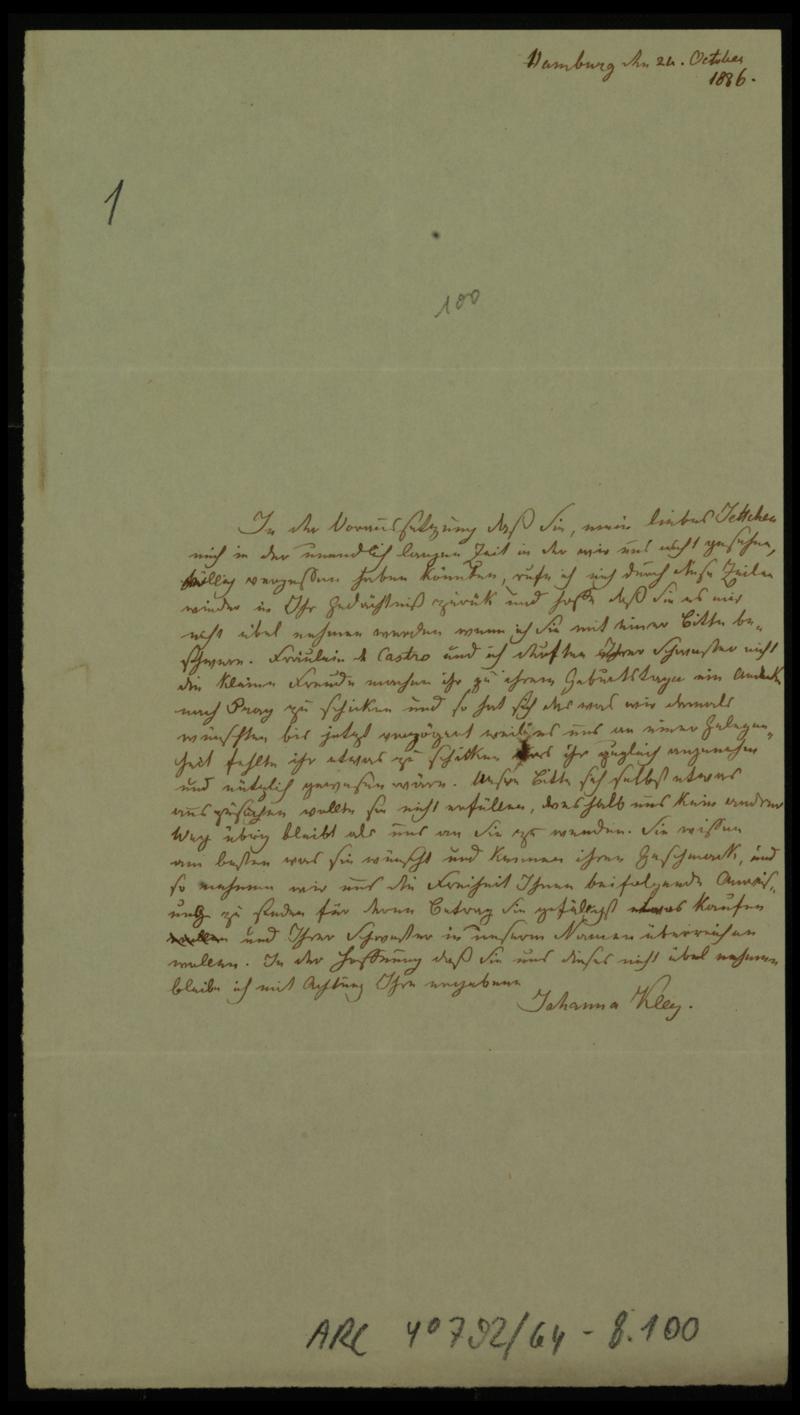 Hamburg den 24. October
1836.
1
100
In der Voraussetzung daß Sie, mein liebes Jettchen
mich in der unendlich langen Zeit in der wir uns nicht gesehen,
völlig vergessen haben könnten, rufe ich mich durch diese Zeilen
wieder in Ihr Gedächtniß zurück und hoffe daß Sie es mir
nicht übel nehmen werden wenn ich Sie mit einer Bitte be-
schwere. Fräulein de Castro und ich durften Ihrer Schwester nicht
die kleine Freude machen ihr zu ihrem Geburtstage ein Andenk
nach Prag zu schicken und so hat sich das was wir damals
wünschten bis jetzt verzögert weil es uns an einer Gelegen-
heit fehlte ihr etwas zu schicken das ihr zugleich angenehm
und nützlich gewesen wäre. Unsre Bitte sich selbst etwas
auszusuchen wollte sie nicht erfüllen, weshalb uns kein andrer
Weg übrig bleibt als uns an Sie zu wenden. Sie wissen
am besten was sie wünscht und kennen ihren Geschmack, und
so nehmen wir uns die Freiheit Ihnen beifolgende Anweis-
ung zu senden für deren Betrag Sie gefälligst etwas kaufen
und Ihrer Schwester in unserm Namen überreichen
wollen. In der Hoffnung daß Sie uns dieses nicht übel nehmen
bleibe ich mit Achtung Ihre ergebene
Johanna Kley.
ARC 4° 792/64 - 8.100